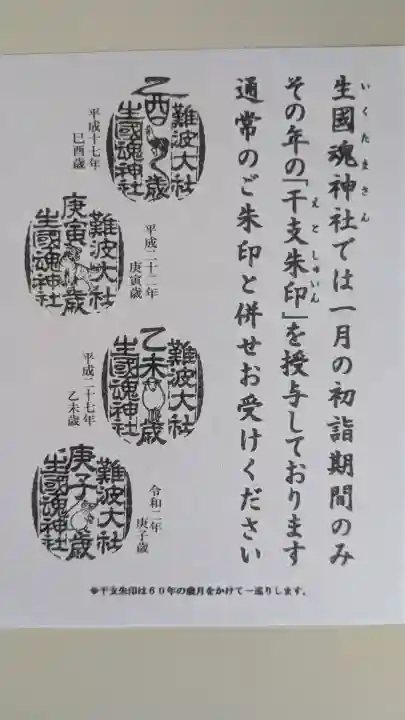 生國魂神社では一月の初詣期間のみ
いくたまさん
その年の「干支朱印」を授与しております
えとしゅいん
通常のご朱印と併せお受けください
難波大社
乙酉歳
生國魂神社
平成十七年
巳酉歳
難波大社
庚寅歳
生國魂神社
平成二十二年
庚寅歳
難波大社
乙未歳
生國魂神社
平成二十七年
乙未歳
難波大社
庚子歳
生國魂神社
令和二年
庚子歳
※干支朱印は60年の歳月をかけて一巡りします。